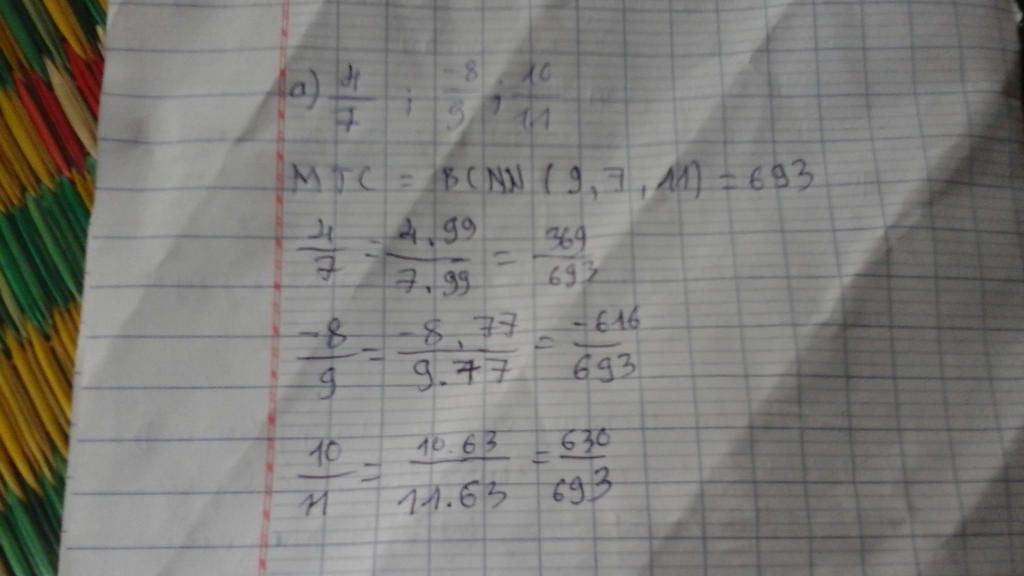 a) 4/7 ; -8/9 ; 10/11
MTC = BCNN (9, 7, 11) = 693
4/7 = 4.99/7.99 = 369/693
-8/9 = -8.77/9.77 = -616/693
10/11 = 10.63/11.63 = 630/693